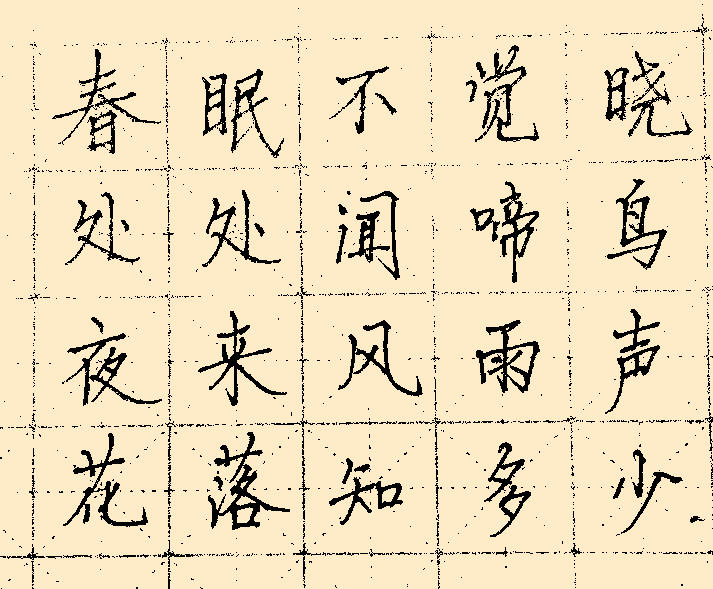 春眠不觉晓
处处闻啼鸟
夜来风雨声
花落知多少.